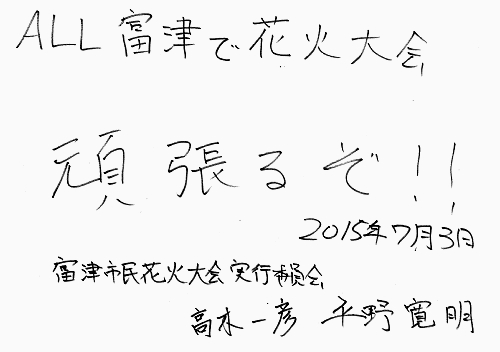 ALL富津で花火大会
頑張るぞ!!
2015年7月3日
富津市民花火大会実行委員会
高木一彦 平野寛明